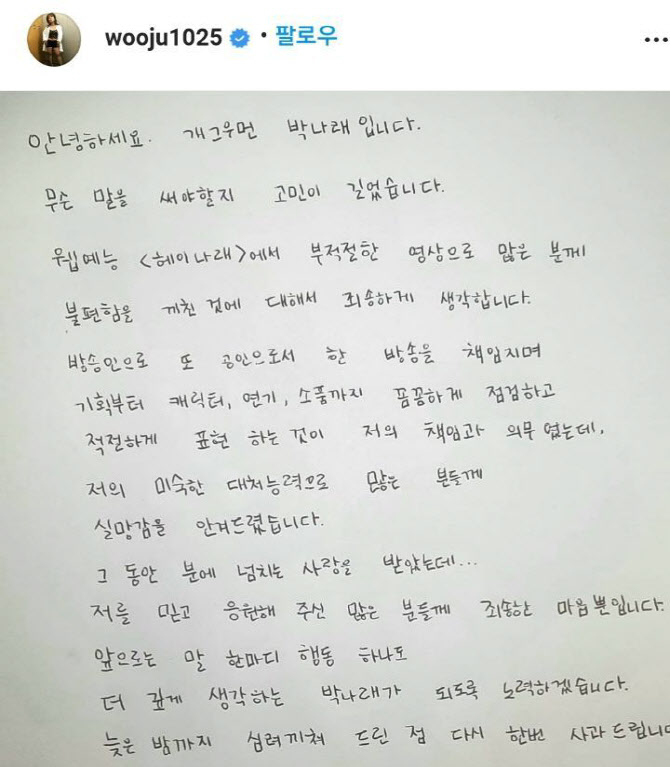 wooju1025 • 팔로우
안녕하세요. 개그우먼 박나래입니다.
무슨 말을 써야할지 고민이 길었습니다.
웹예능 <헤이나래>에서 부적절한 영상으로 많은 분께
불편함을 끼친 것에 대해서 죄송하게 생각합니다.
방송인으로 또 공인으로서 한 방송을 책임지며
기획부터 캐릭터, 연기, 소품까지 꼼꼼하게 점검하고
적절하게 표현 하는 것이 저의 책임과 의무 였는데,
저의 미숙한 대처능력으로 많은 분들께
실망감을 안겨드렸습니다.
그 동안 분에 넘치는 사랑을 받았는데...
저를 믿고 응원해 주신 많은 분들께 죄송한 마음뿐입니다.
앞으로는 말 한마디 행동 하나도
더 깊게 생각하는 박나래가 되도록 노력하겠습니다.
늦은 밤까지 심려끼쳐 드린 점 다시 한번 사과드립니다